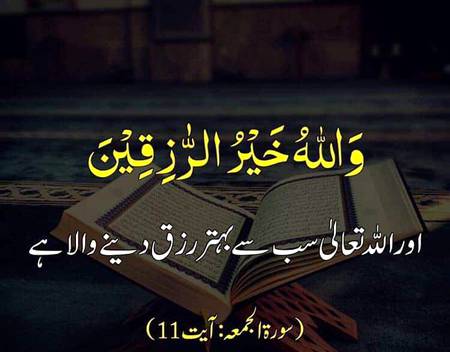 وَاللّٰهُ خَيْرُ الرّٰزِقِيْنَ
اور اللہ تعالیٰ سب سے بہتر رزق دینے والا ہے
(سورۃ الجمعہ: آیت 11)